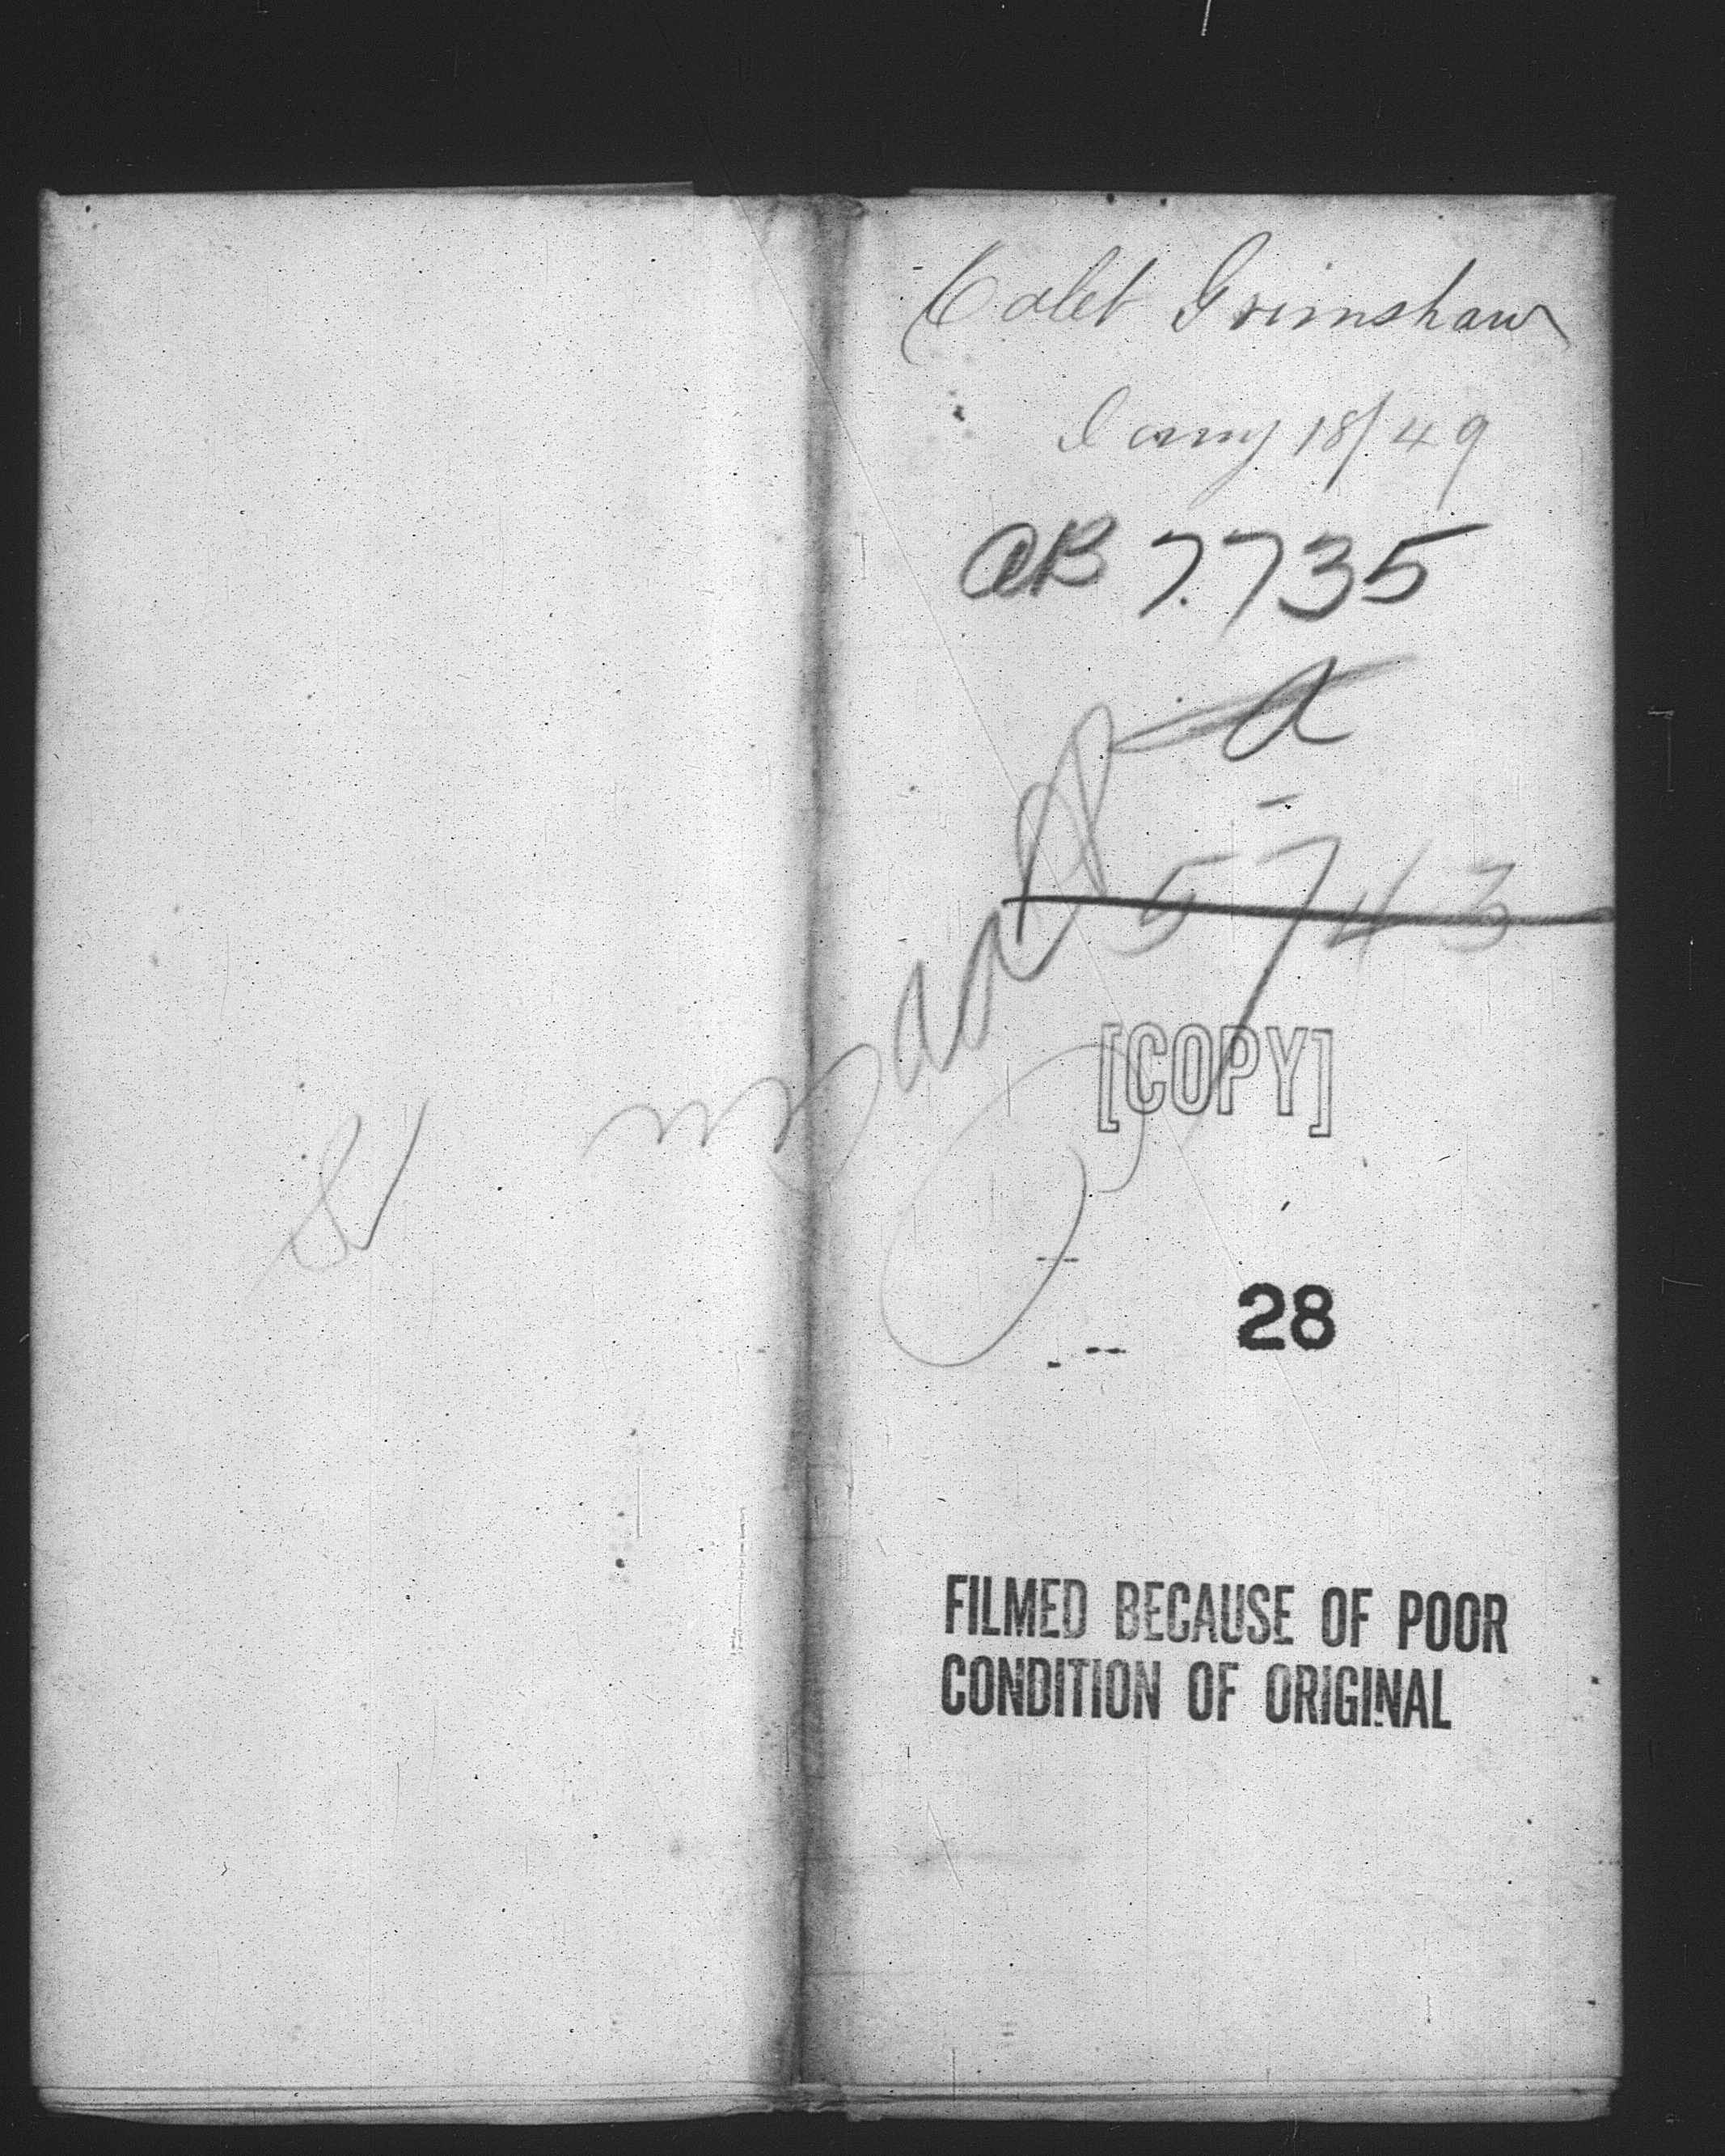 Caleb Grimshaw
Jany 18/49
AB 7.735
A
5743
[COPY]
28
FILMED BECAUSE OF POOR
CONDITION OF ORIGINAL